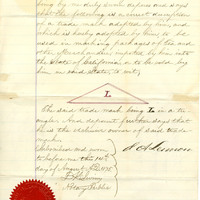 by duly sworn deposes and says
that the following is a correct description
of a trade mark adopted by him, and
which is hereby adopted by him to be
used in marking packages of tea and
other Merchandise, imported by him into
the State of California, or to be sold by
him in said State, to wit;
L
The said trade mark being L in a tri-
angle. And deponent further says that
he is the exclusive owner of said trade
mark
Subscribed and sworn
to before me this 14th
day of August 1875
Notary Public